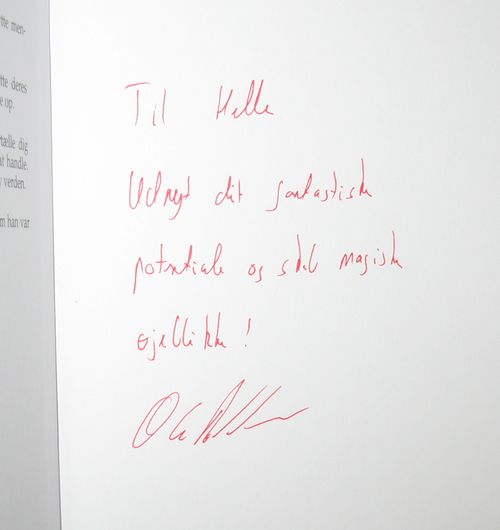 tte men-
tte deres
e op.
rtælle dig
at handle.
verden.
m han var
Til Helle
Udnyt dit fantastiske
potentiale og skab magiske
øjeblikke!